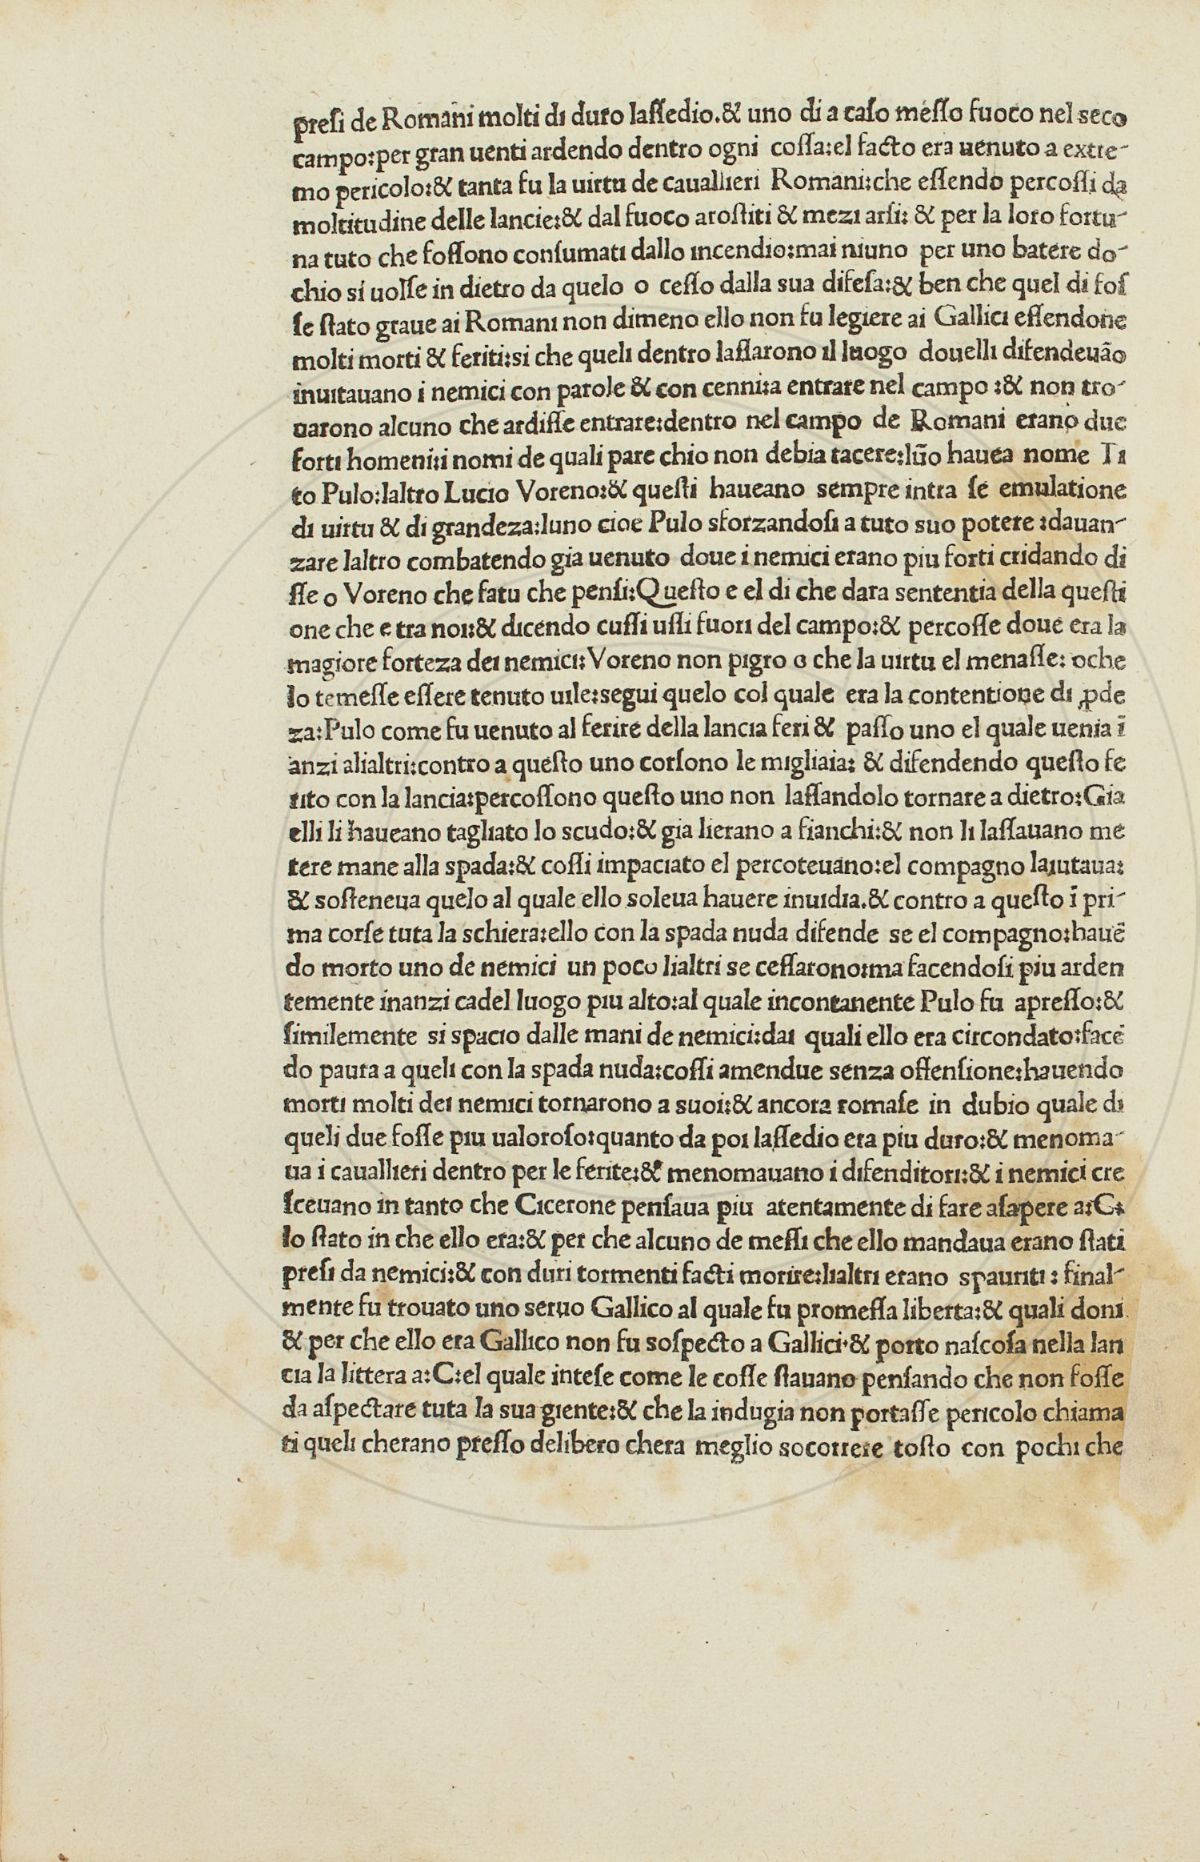 presi de Romani molti di duro lassedio.& uno di a caso messo fuoco nel seco
campo:per gran uenti ardendo dentro ogni cossa:el facto era uenuto a extre-
mo pericolo:& tanta fu la uirtu de cauallieri Romani:che essendo percossi da
moltitudine delle lancie:& dal fuoco arostiti & mezi arsi: & per la loro fortu-
na tuto che fossono consumati dallo incendio:mai niuno per uno batere do-
chio si uolse in dietro da quelo o cesso dalla sua difesa:& ben che quel di fos
se stato graue ai Romani non dimeno ello non fu legiere ai Gallici essendone
molti morti & feriti:si che queli dentro lassarono il luogo douelli difendeuāo
inuitauano i nemici con parole & con cenni:a entrare nel campo :& non tro-
uarono alcuno che ardisse entrare:dentro nel campo de Romani erano due
forti homeni:i nomi de quali pare chio non debia tacere:lūo hauea nome Ti
to Pulo:laltro Lucio Voreno:& questi haueano sempre intra se emulatione
di uirtu & di grandeza:luno cioe Pulo sforzandosi a tuto suo potere :dauan-
zare laltro combatendo gia uenuto doue i nemici erano piu forti cridando di
sse o Voreno che fatu che pensi:Questo e el di che dara sententia della questi
one che e tra noi:& dicendo cussi ussi fuori del campo:& percosse doue era la
magiore forteza dei nemici:Voreno non pigro o che la uirtu el menasse: oche
lo temesse essere tenuto uile:segui quelo col quale era la contentione di ꝓde
za:Pulo come fu uenuto al ferire della lancia feri & passo uno el quale uenia ī
anzi alialtri:contro a questo uno corsono le migliaia: & difendendo questo fe
rito con la lancia:percossono questo uno non lassandolo tornare a dietro:Gia
elli li haueano tagliato lo scudo:& gia lierano a fianchi:& non li lassauano me
tere mane alla spada:& cossi impaciato el percoteuano:el compagno laiutaua:
& sosteneua quelo al quale ello soleua hauere inuidia.& contro a questo ī pri-
ma corse tuta la schiera:ello con la spada nuda difende se el compagno:hauē
do morto uno de nemici un poco lialtri se cessarono:ma facendosi piu arden
temente inanzi cadel luogo piu alto:al quale incontanente Pulo fu apresso:&
similemente si spacio dalle mani de nemici:dai quali ello era circondato:facē
do paura a queli con la spada nuda:cossi amendue senza offensione:hauendo
morti molti dei nemici tornarono a suoi:& ancora romase in dubio quale di
queli due fosse piu ualoroso:quanto da poi lassedio era piu duro:& menoma-
ua i cauallieri dentro per le ferite:& menomauano i difenditori:& i nemici cre
sceuano in tanto che Cicerone pensaua piu atentamente di fare asapere a:C:
lo stato in che ello era:& per che alcuno de messi che ello mandaua erano stati
presi da nemici:& con duri tormenti facti morire:lialtri erano spauriti : final-
mente fu trouato uno seruo Gallico al quale fu promessa liberta:& quali doni
& per che ello era Gallico non fu sospecto a Gallici·& porto nascosa nella lan
cia la littera a:C:el quale intese come le cosse stauano pensando che non fosse
da aspectare tuta la sua giente:& che la indugia non portasse pericolo chiama
ti queli cherano presso delibero chera meglio socorrere tosto con pochi che